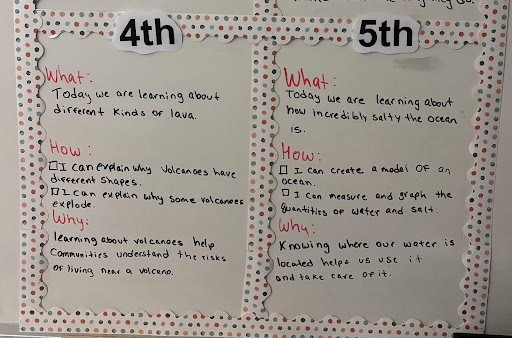 4th
What:
Today we are learning about
different kinds of lava.
How:
☐ I can explain why volcanoes have
different shapes.
☐ I can explain why some volcanoes
explode.
Why:
learning about volcanoes help
communities understand the risks
of living near a volcano.
5th
What:
Today we are learning about
how incredibly salty the ocean
is.
How:
☐ I can create a model of an
ocean.
☐ I can measure and graph the
quantities of water and salt.
Why:
Knowing where our water is
located helps us use it
and take care of it.